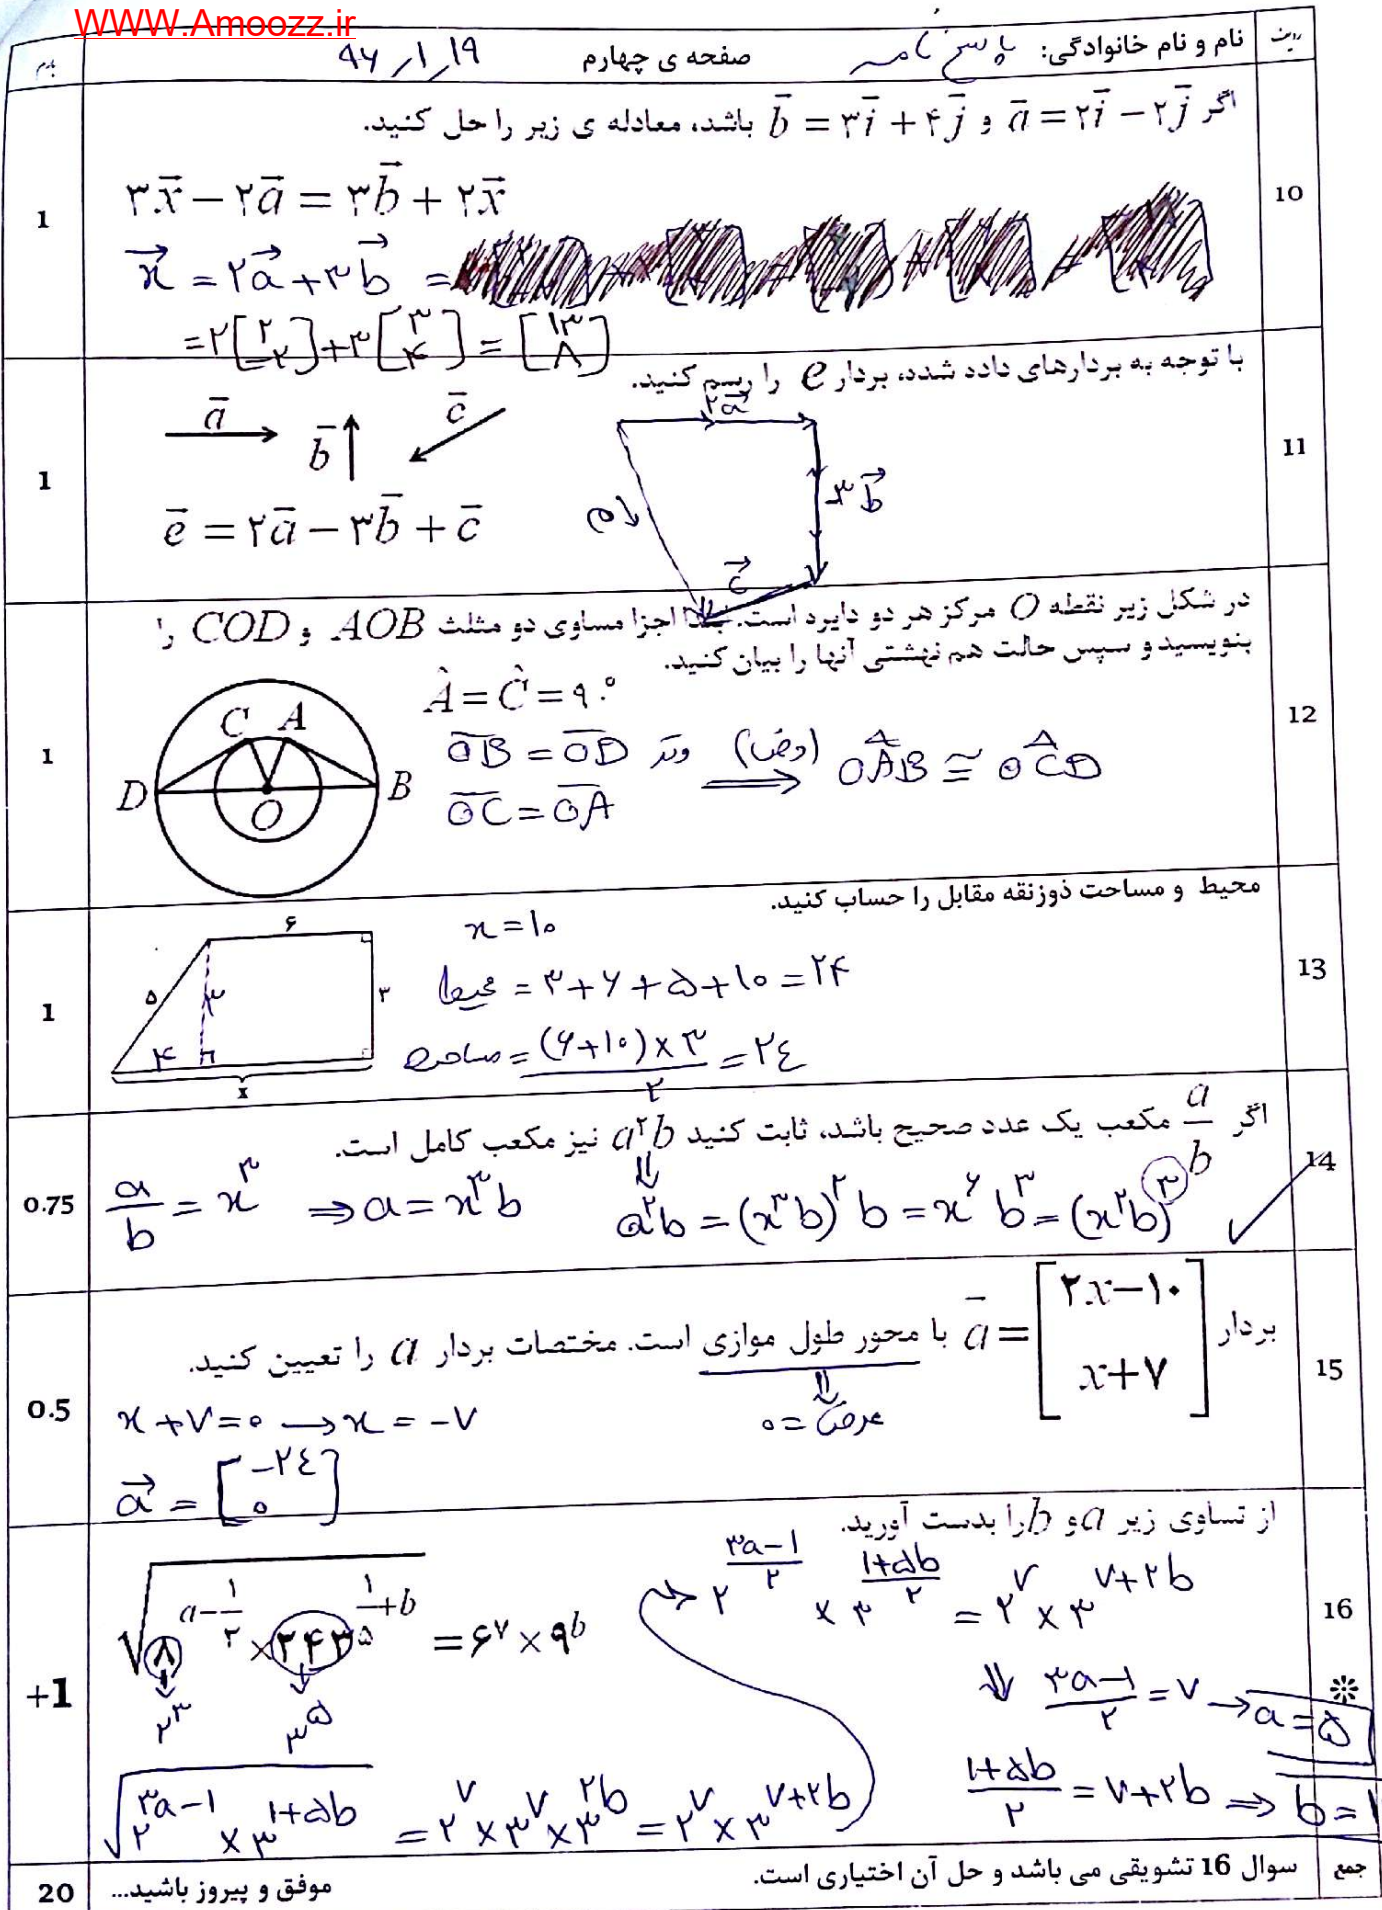 WWW.Amoozz.ir
ردیف نام و نام خانوادگی: پاسخ نامه صفحه ی چهارم ۹۷/۱/۱۹ بارم
10 اگر a = ۲i − ۲j و b = ۳i + ۴j باشد، معادله ی زیر را حل کنید. 1
۳x − ۲a = ۳b + ۲x
x = ۲a + ۳b =
= ۲[۲ −۲] + ۳[۳ ۴] = [۱۳ ۸]
11 با توجه به بردارهای داده شده، بردار e را رسم کنید. 1
a b c
e = ۲a − ۳b + c
۲a
۳b
c
e
12 در شکل زیر نقطه O مرکز هر دو دایره است. اجزا مساوی دو مثلث AOB و COD را 1
بنویسید و سپس حالت هم نهشتی آنها را بیان کنید.
D C A B O
Â = Ĉ = ۹۰°
OB = OD وتر
OC = OA
(وض) ⟹ OAB ≅ OCD
13 محیط و مساحت ذوزنقه مقابل را حساب کنید. 1
۶ ۵ ۳ ۳ ۴ x
x = ۱۰
محیط = ۳+۶+۵+۱۰ = ۲۴
مساحت = (۶+۱۰)×۳ / ۲ = ۲۴
14 اگر a/b مکعب یک عدد صحیح باشد، ثابت کنید a²b نیز مکعب کامل است. 0.75
a/b = x³ ⇒ a = x³b
a²b = (x³b)²b = x⁶b³ = (x²b)³
15 بردار a = [۲x−۱۰ x+۷] با محور طول موازی است. مختصات بردار a را تعیین کنید. 0.5
عرض = ۰
x + ۷ = ۰ → x = −۷
a = [−۲۴ ۰]
16 از تساوی زیر a و b را بدست آورید. +1
√(۸^(a−۱/۳) × ۲۴۳^(۱/۵+b)) = ۶^۷ × ۹^b
۲³ ۳⁵
√(۲^(۳a−۱) × ۳^(۱+۵b)) = ۲^۷ × ۳^۷ × ۳^(۲b) = ۲^۷ × ۳^(۷+۲b)
۲^((۳a−۱)/۲) × ۳^((۱+۵b)/۲) = ۲^۷ × ۳^(۷+۲b)
⇓ (۳a−۱)/۲ = ۷ → a = ۵
(۱+۵b)/۲ = ۷+۲b ⇒ b = ۱
جمع سوال 16 تشویقی می باشد و حل آن اختیاری است. موفق و پیروز باشید... 20